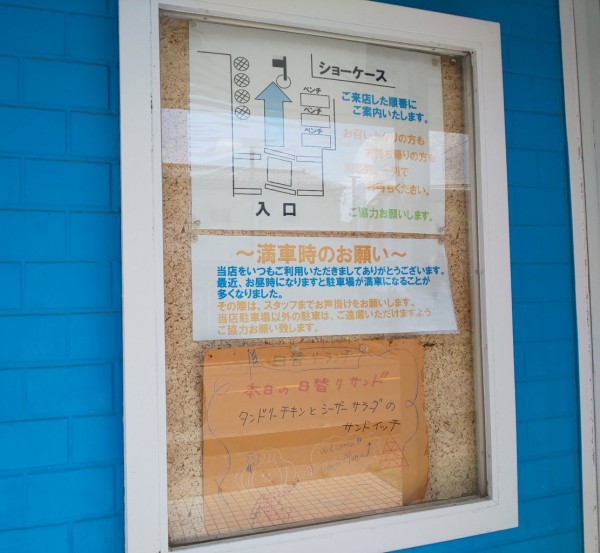 ショーケース
ベンチ
ベンチ
ベンチ
入口
ご来店した順番に
ご案内いたします。
お召し上がりの方も
お持ち帰りの方も
お待ちください。
ご協力お願いします。
～満車時のお願い～
当店をいつもご利用いただきましてありがとうございます。
最近、お昼時になりますと駐車場が満車になることが
多くなりました。
その際は、スタッフまでお声掛けをお願いします。
当店駐車場以外の駐車は、ご遠慮いただけますよう
ご協力お願い致します。
日替りランチ
本日の日替りサンド
タンドリーチキンとシーザーサラダの
サンドイッチ